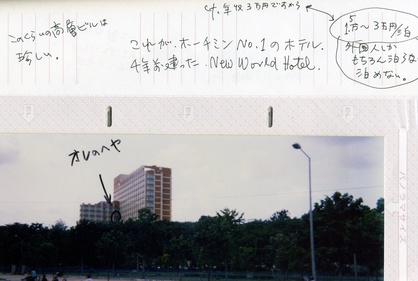 4.年収3万円ですから
このくらいの高層ビルは
珍しい。
これが、ホーチミン No.1 のホテル.
4年前建った. New World Hotel.
5
1万〜3万円/泊
外国人しか
もちろん泊らな
泊めない。
オレのヘヤ